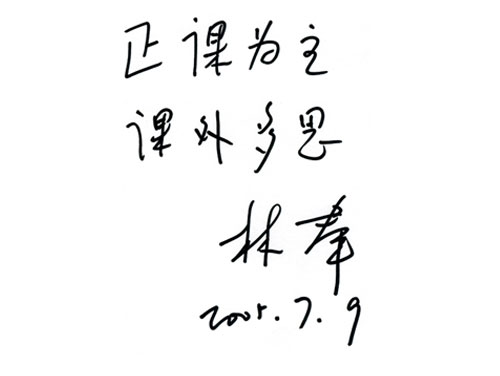 正课为主
课外多思
林群
2005.7.9